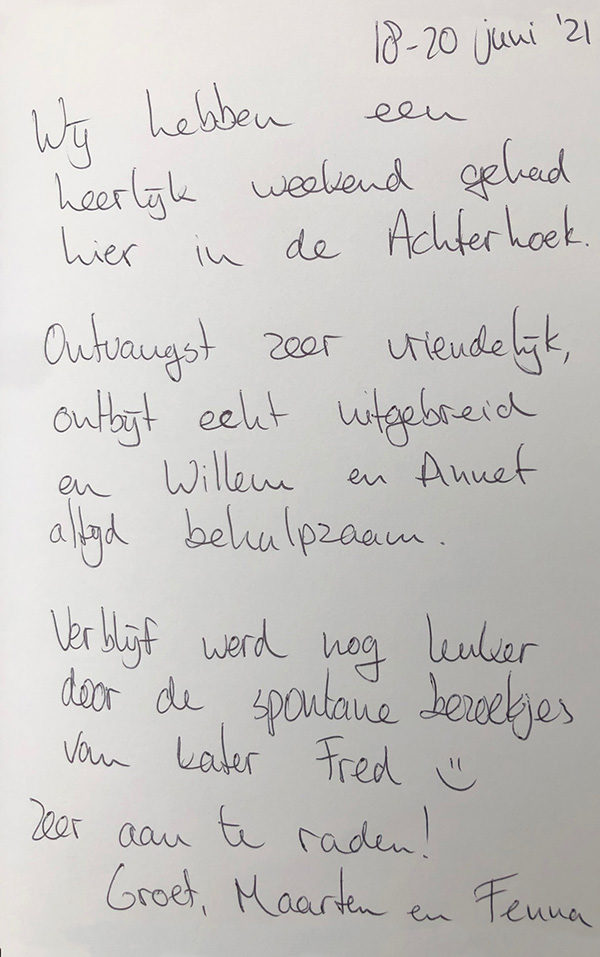 18-20 juni '21
Wij hebben een
heerlijk weekend gehad
hier in de Achterhoek.
Ontvangst zeer vriendelijk,
ontbijt echt uitgebreid
en Willem en Annet
altijd behulpzaam.
Verblijf werd nog leuker
door de spontane bezoekjes
van kater Fred
Zeer aan te raden!
Groet, Maarten en Fenna